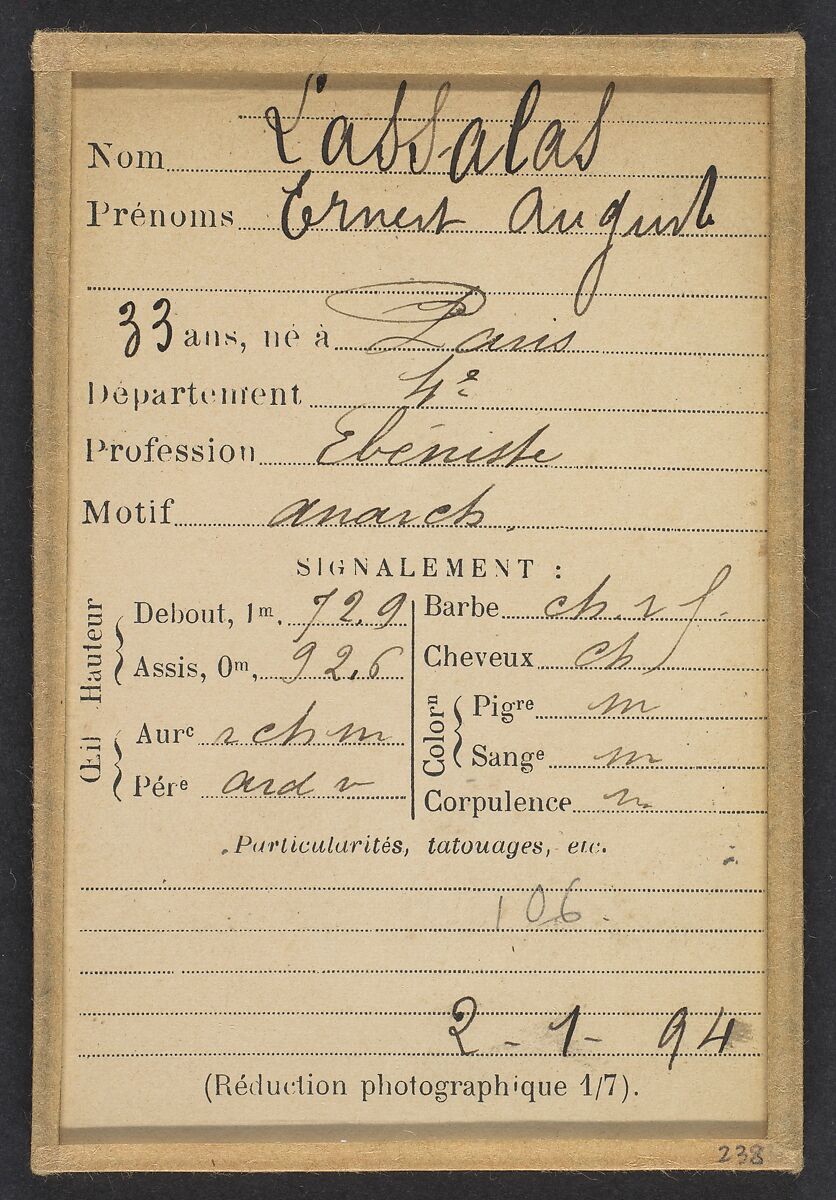 Nom Lassalas
Prénoms Ernest August
33 ans, né à Paris
Département 4e
Profession Ebéniste
Motif anarch.
SIGNALEMENT :
Hauteur
Debout, 1m, 72.9
Assis, 0m, 92,6
Œil
Aurᵉ r ch m
Pérᵉ ard v
Barbe ch. r f.
Cheveux ch
Colorⁿ
Pigʳᵉ m
Sangᵉ m
Corpulence
Particularités, tatouages, etc.
106.
2 - 1 - 94
(Réduction photographique 1/7).
238